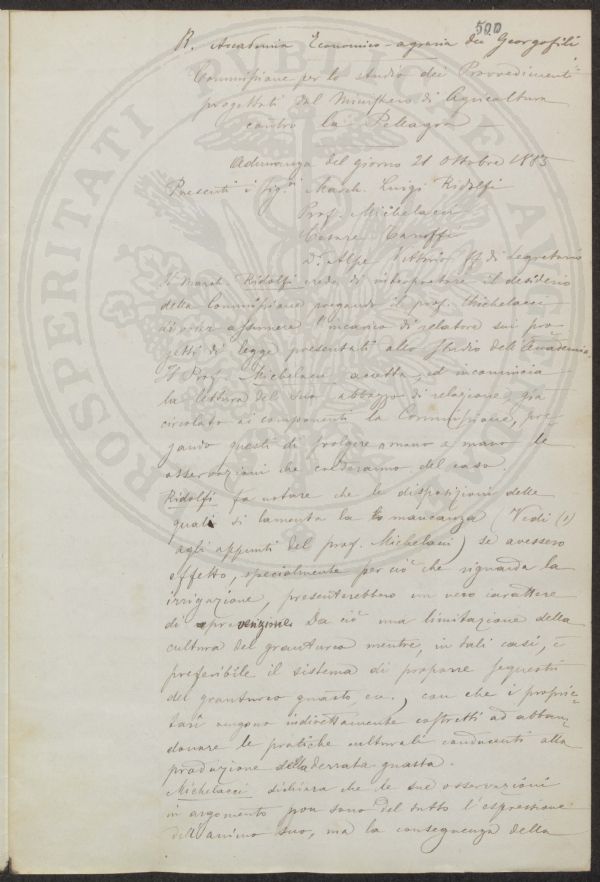 500
R. Accademia Economico-agraria dei Georgofili
Commissione per lo studio dei Provvedimenti
progettati dal Ministero di Agricoltura
contro la Pellagra
Adunanza del giorno 21 Ottobre 1883
Presenti i Sig.ri March. Luigi Ridolfi
Prof. Michelacci
Cesare Taruffi
Dr. Alpe Vittorio ff. di Segretario
Il March. Ridolfi crede di interpretare il desiderio
della Commissione pregando il prof. Michelacci
a voler assumere l'incarico di relatore sui pro-
getti di legge presentati allo studio dell'Accademia.
Il Prof. Michelacci accetta, ed incomincia
la lettura del suo abbozzo di relazione, già
circolato ai componenti la Commissione, pre-
gando questi di svolgere mano a mano le
osservazioni che crederanno del caso.
Ridolfi fa notare che le disposizioni delle
quali si lamenta la mancanza (Vedi (1)
agli appunti del prof. Michelacci) se avessero
effetto, specialmente per ciò che riguarda la
irrigazione, presenterebbero un vero carattere
di prevenzione. Da ciò una limitazione della
cultura del granturco mentre, in tali casi, è
preferibile il sistema di proporre sequestri
del granturco guasto, ec., con che i proprie-
tari vengono indirettamente costretti ad abban-
donare le pratiche culturali conducenti alla
produzione della derrata guasta.
Michelacci dichiara che le sue osservazioni
in argomento non sono del tutto l'espressione
dell'animo suo, ma la conseguenza della
PROSPERITATI PUBLICAE AUGENDAE